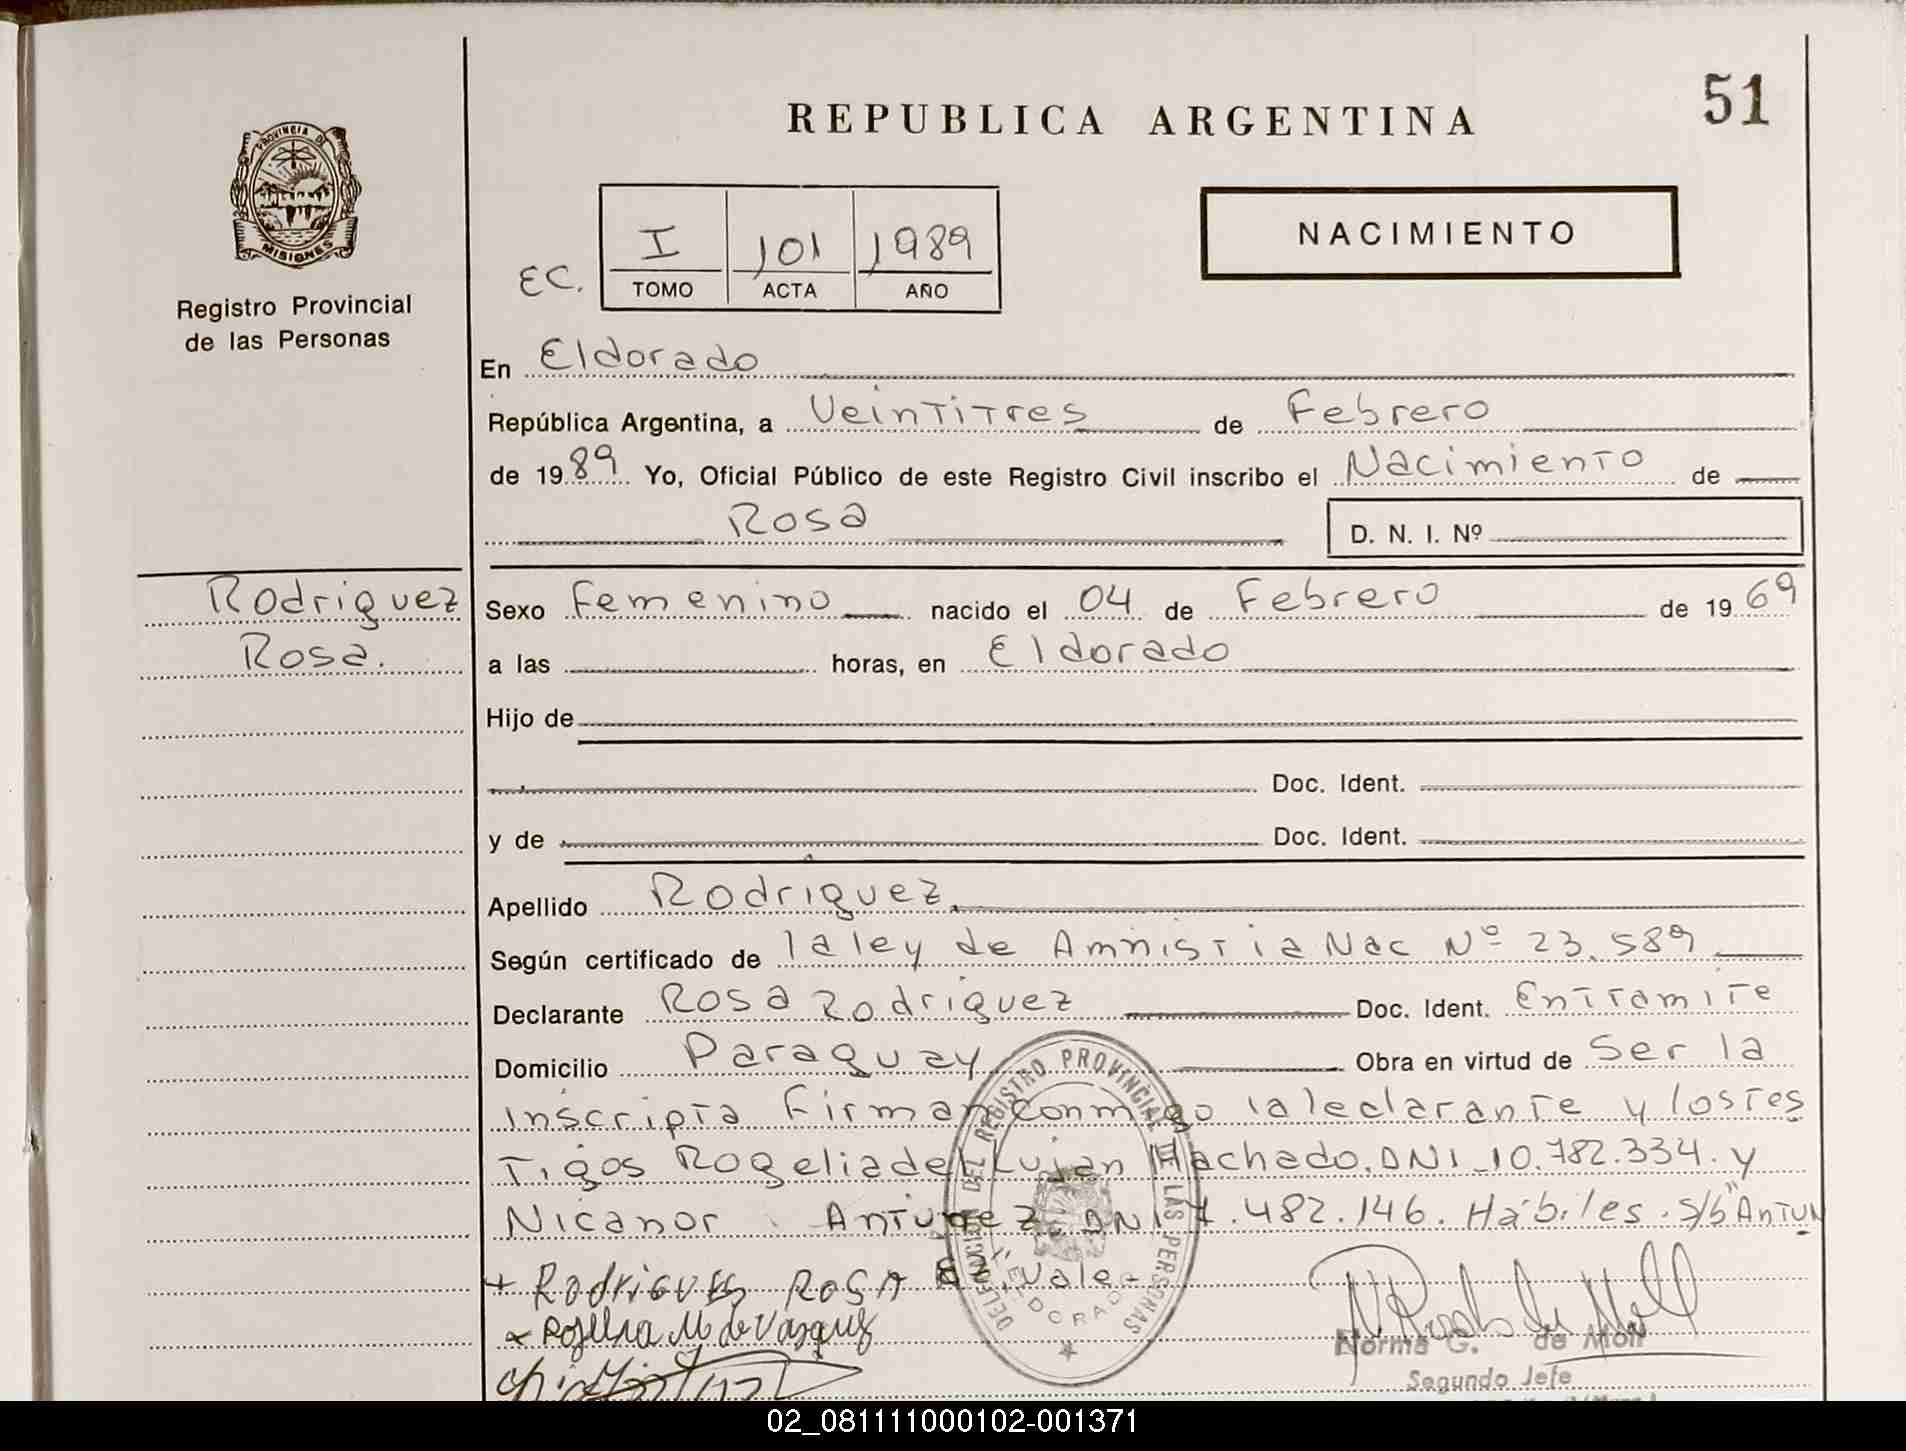 51
REPUBLICA ARGENTINA
PROVINCIA DE
MISIONES
Registro Provincial
de las Personas
NACIMIENTO
EC.
I 101 1989
TOMO ACTA AÑO
En Eldorado
República Argentina, a Veintitres de Febrero
de 1989 Yo, Oficial Público de este Registro Civil inscribo el Nacimiento de
Rosa
D. N. I. Nº
Rodriguez
Rosa.
Sexo Femenino nacido el 04 de Febrero de 1969
a las horas, en Eldorado
Hijo de
Doc. Ident.
y de Doc. Ident.
Apellido Rodriguez
Según certificado de la ley de Amnistia Nac Nº 23.589
Declarante Rosa Rodriguez Doc. Ident. En Tramite
Domicilio Paraguay Obra en virtud de Ser la
inscripta Firman conmigo la leclarante y los Tes
Tigos Rogelia del Lujan Machado. DNI 10.782.334. y
Nicanor Antunez DNI .482.146. Habiles. S/b "Antun
Ez. Vale.
+ Rodrigues ROSA
Rogelia M de Vasquez
DELEGACION DEL REGISTRO PROVINCIAL DE LAS PERSONAS
ELDORADO
Norma G. de Moll
Segundo Jefe
02_081111000102-001371